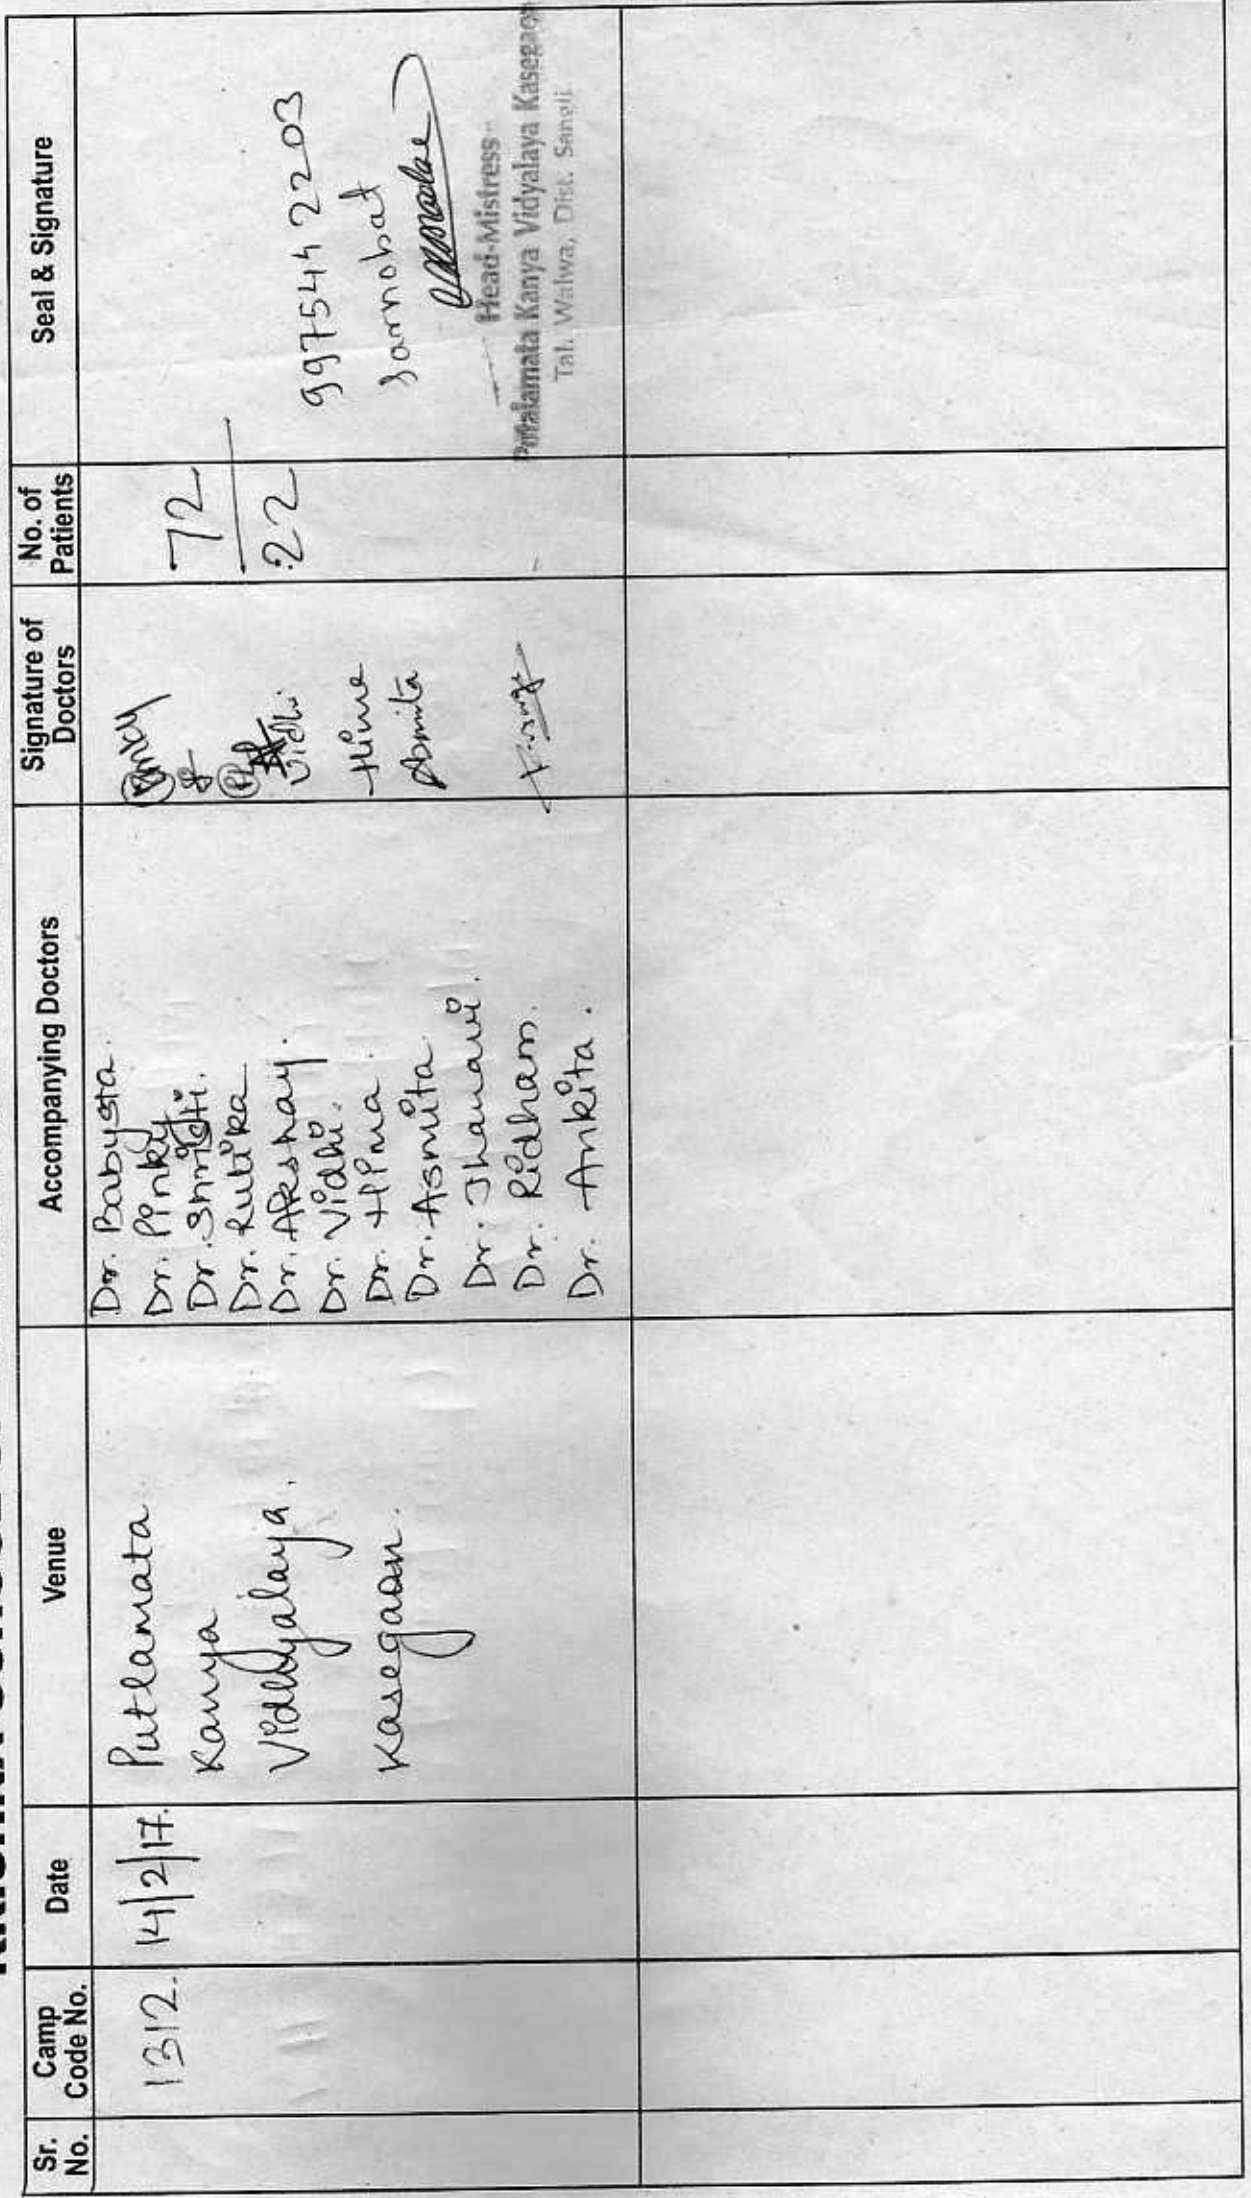 Sr. No.
Camp Code No.
Date
Venue
Accompanying Doctors
Signature of Doctors
No. of Patients
Seal & Signature
1312.
14/2/17.
Putlamata
Kanya
Vidhyalaya.
Kasegaon.
Dr. Babysta.
Dr. Pinky
Dr. Shristi.
Dr. Rutika
Dr. Akshay.
Dr. Vidhi.
Dr. Hima.
Dr. Asmita
Dr. Jhanavi.
Dr. Ridham.
Dr. Ankita.
Pinky
Vidhi.
Hime
Asmita
72
22
9975442203
Sarnobat
Head-Mistress
Putalamata Kanya Vidyalaya Kasegaon
Tal. Walwa, Dist. Sangli.